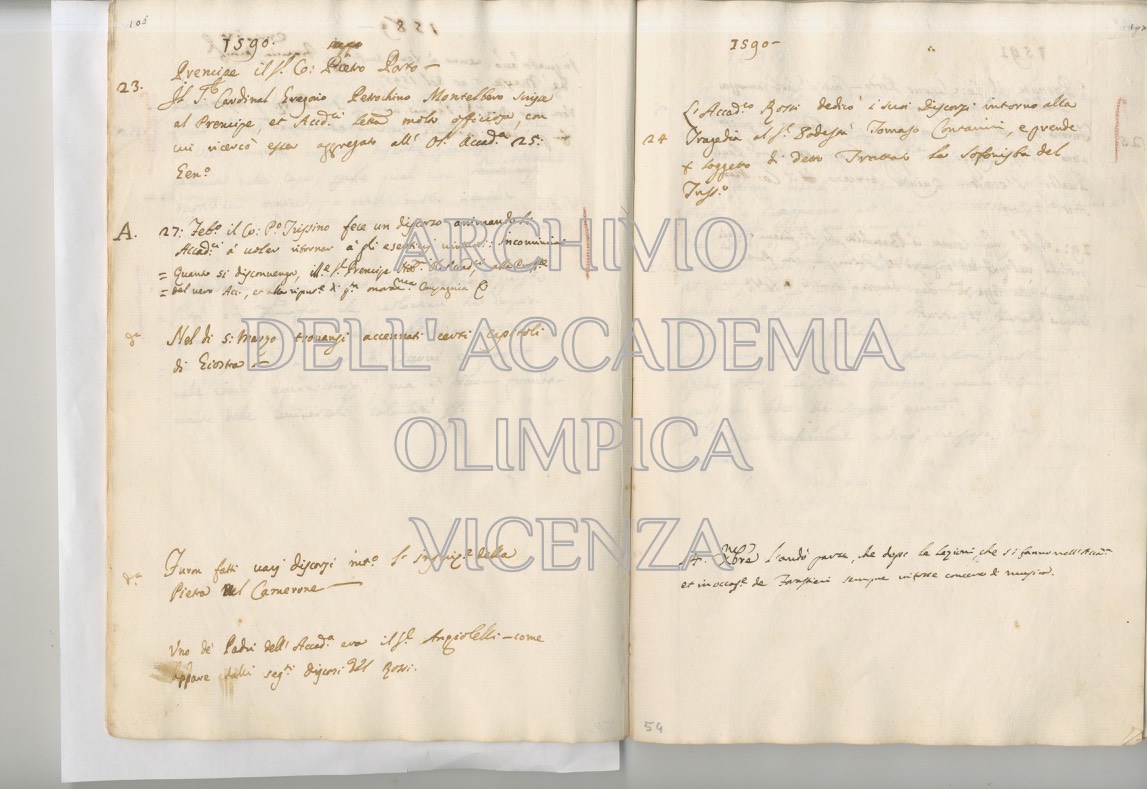 105
1590.
Prencipe il s.r Co: Pietro Porto
23.
Il S.r Cardinal Gregorio Petrochino Montelbero scrisse
al Prencipe, et Accad.ci molto officiosa, con
cui ricercò esser aggregato all' Ol. Accad.a 25:
Gen.o
A.
27: Feb.o il Co: P.o Trissino fece un discorso animando li
Accad.ci à voler ritornar à gli esercizij virtuosi: incomincia
= Quanto si disconvenga, Prencipe
= del vero Acc.
Nel dì 5: Marzo trovansi accennati certi capitoli
di Giostra
Furon fatti varij discorsi int.o della
Pietra nel Camerone
Uno de Padri dell' Accad.a era il S.r Angiolelli - come
appare seg.ti discorsi del Rossi.
1590
24
L'Accad.co Rossi dedicò i suoi Discorsi intorno alla
Tragedia al s.r Podestà Tomaso Contarini, e prende
soggetto di detto Trattato la Sofonisba del
Triss.o
14. Xbre L'andò parte, che dopo la Lezioni, che si fanno nell'Accad.a
et in occas.e de sempre concerto di musica.
54
ARCHIVIO
DELL'ACCADEMIA
OLIMPICA
VICENZA